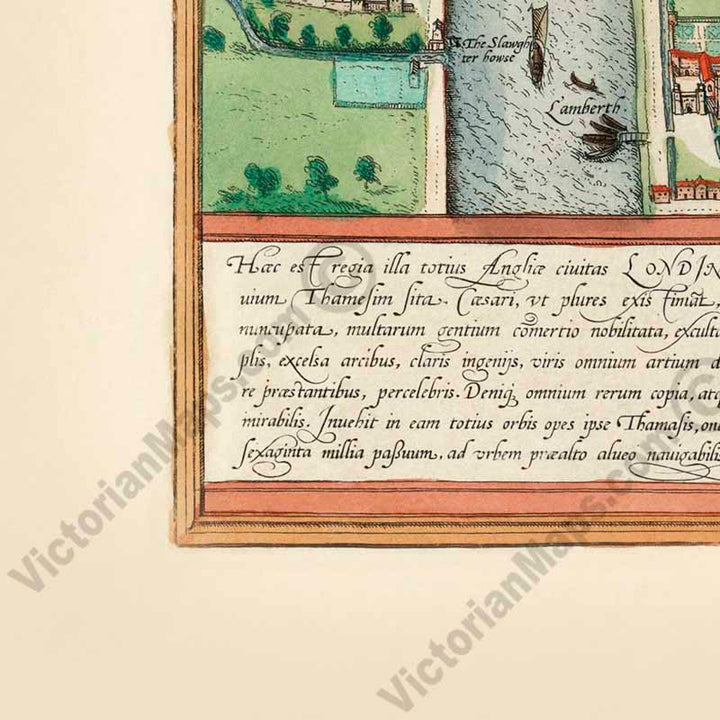 The Slawgh
ter howse
Lamberth
Hæc est regia illa totius Angliæ ciuitas LONDIN
uium Thamesim sita. Cæsari, vt plures existimãt,
nuncupata, multarum gentium cõmertio nobilitata, exculta
plis, excelsa arcibus, claris ingenijs, viris omnium artium d
re præstantibus, percelebris. Deniq, omnium rerum copia, atq
mirabilis. Inuehit in eam totius orbis opes ipse Thamasis, one
sexaginta millia paßuum, ad vrbem præalto alueo nauigabilis
VictorianMaps.com ©
VictorianMaps.com ©